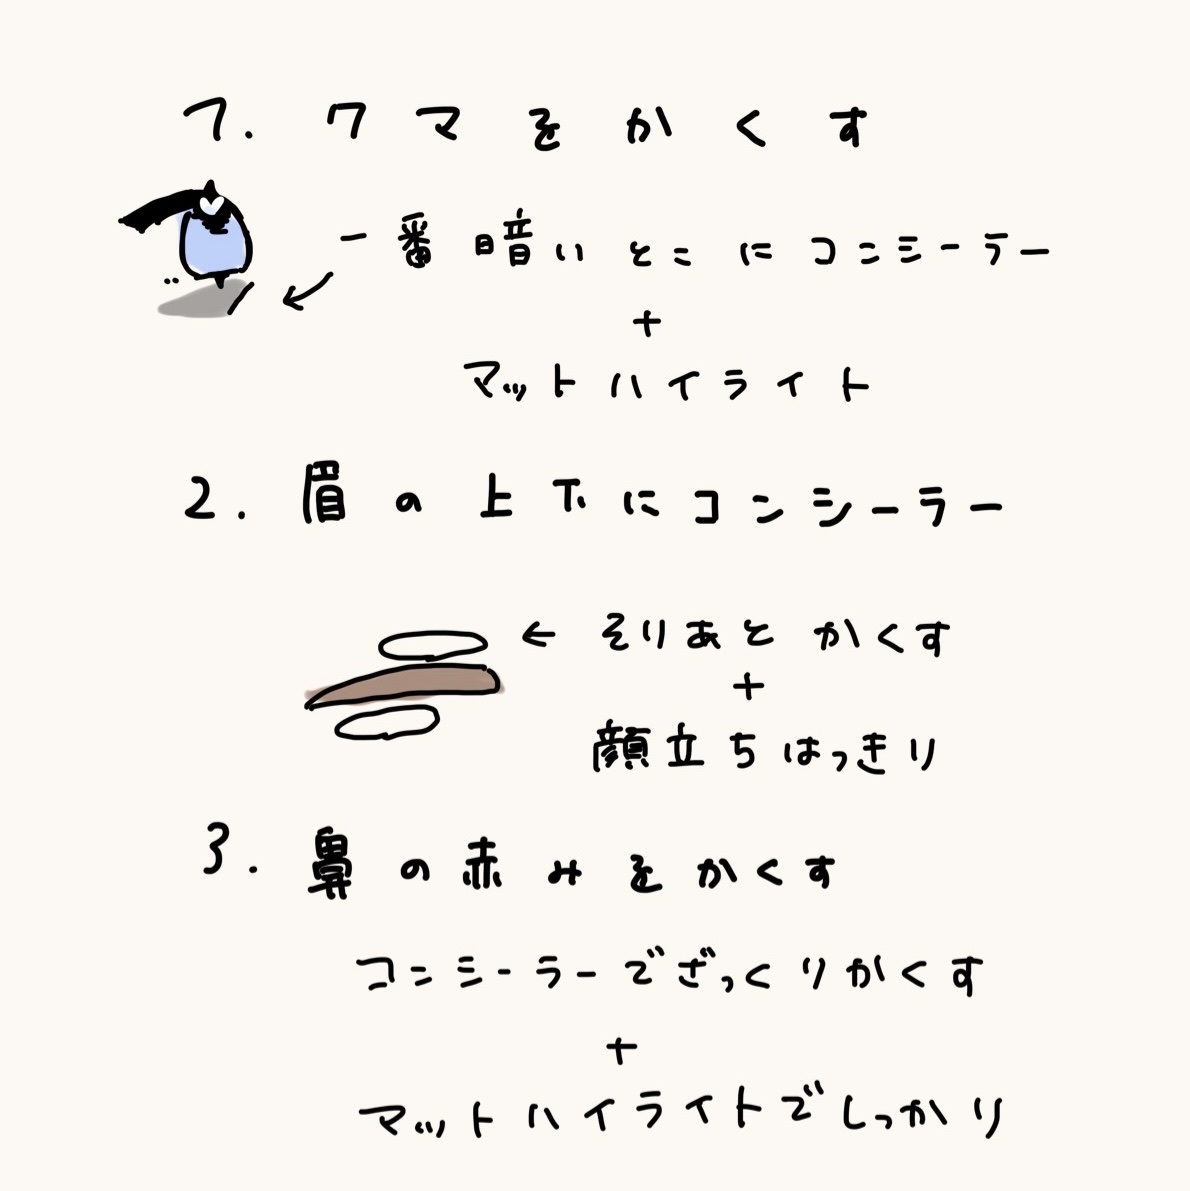 1. クマをかくす
一番暗いとこにコンシーラー
+
マットハイライト
2. 眉の上下にコンシーラー
← そりあとかくす
+
顔立ちはっきり
3. 鼻の赤みをかくす
コンシーラーでざっくりかくす
+
マットハイライトでしっかり